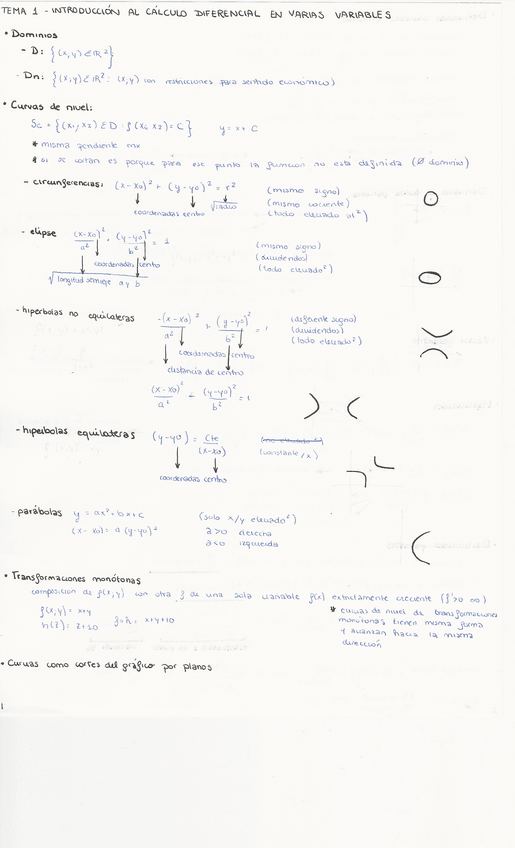 TEMA 1 - INTRODUCCIÓN AL CÁLCULO DIFERENCIAL EN VARIAS VARIABLES
• Dominios
- D: {(x,y) ∈ ℝ²}
- Dn: {(x,y) ∈ ℝ² : (x,y) con restricciones para sentido económico}
• Curvas de nivel:
Sc = {(x1, x2) ∈ D : f(x1, x2) = C} y = x + C
* misma pendiente mx
* si se cortan es porque para ese punto la función no está definida (∅ dominio)
- circunferencias: (x-x0)² + (y-y0)² = r² (mismo signo)
(mismo cociente)
coordenadas centro √radio (todo elevado al ²)
- elipse (x-x0)²/a² + (y-y0)²/b² = 1 (mismo signo)
(dividendos)
coordenadas centro (todo elevado²)
√longitud semieje a y b
- hiperbolas no equilateras -(x-x0)²/a² + (y-y0)²/b² = 1 (diferente signo)
(dividendos)
(todo elevado²)
coordenadas centro
distancia de centro
(x-x0)²/a² - (y-y0)²/b² = 1
- hiperbolas equilateras (y-y0) = cte/(x-x0) (no elevado²)
(constante/x)
coordenadas centro
- parábolas y = ax² + bx + c (solo x/y elevado²)
(x-x0) = a(y-y0)² a>0 derecha
a<0 izquierda
• Transformaciones monótonas
composición de f(x,y) con otra f de una sola variable f(x) estrictamente creciente (f'>0
f(x,y) = x+y
h(z) = z+10 f∘h = x+y+10
* curvas de nivel de transformaciones
monótonas tienen misma forma
y avanzan hacia la misma
dirección
• Curvas como cortes del gráfico por planos
1